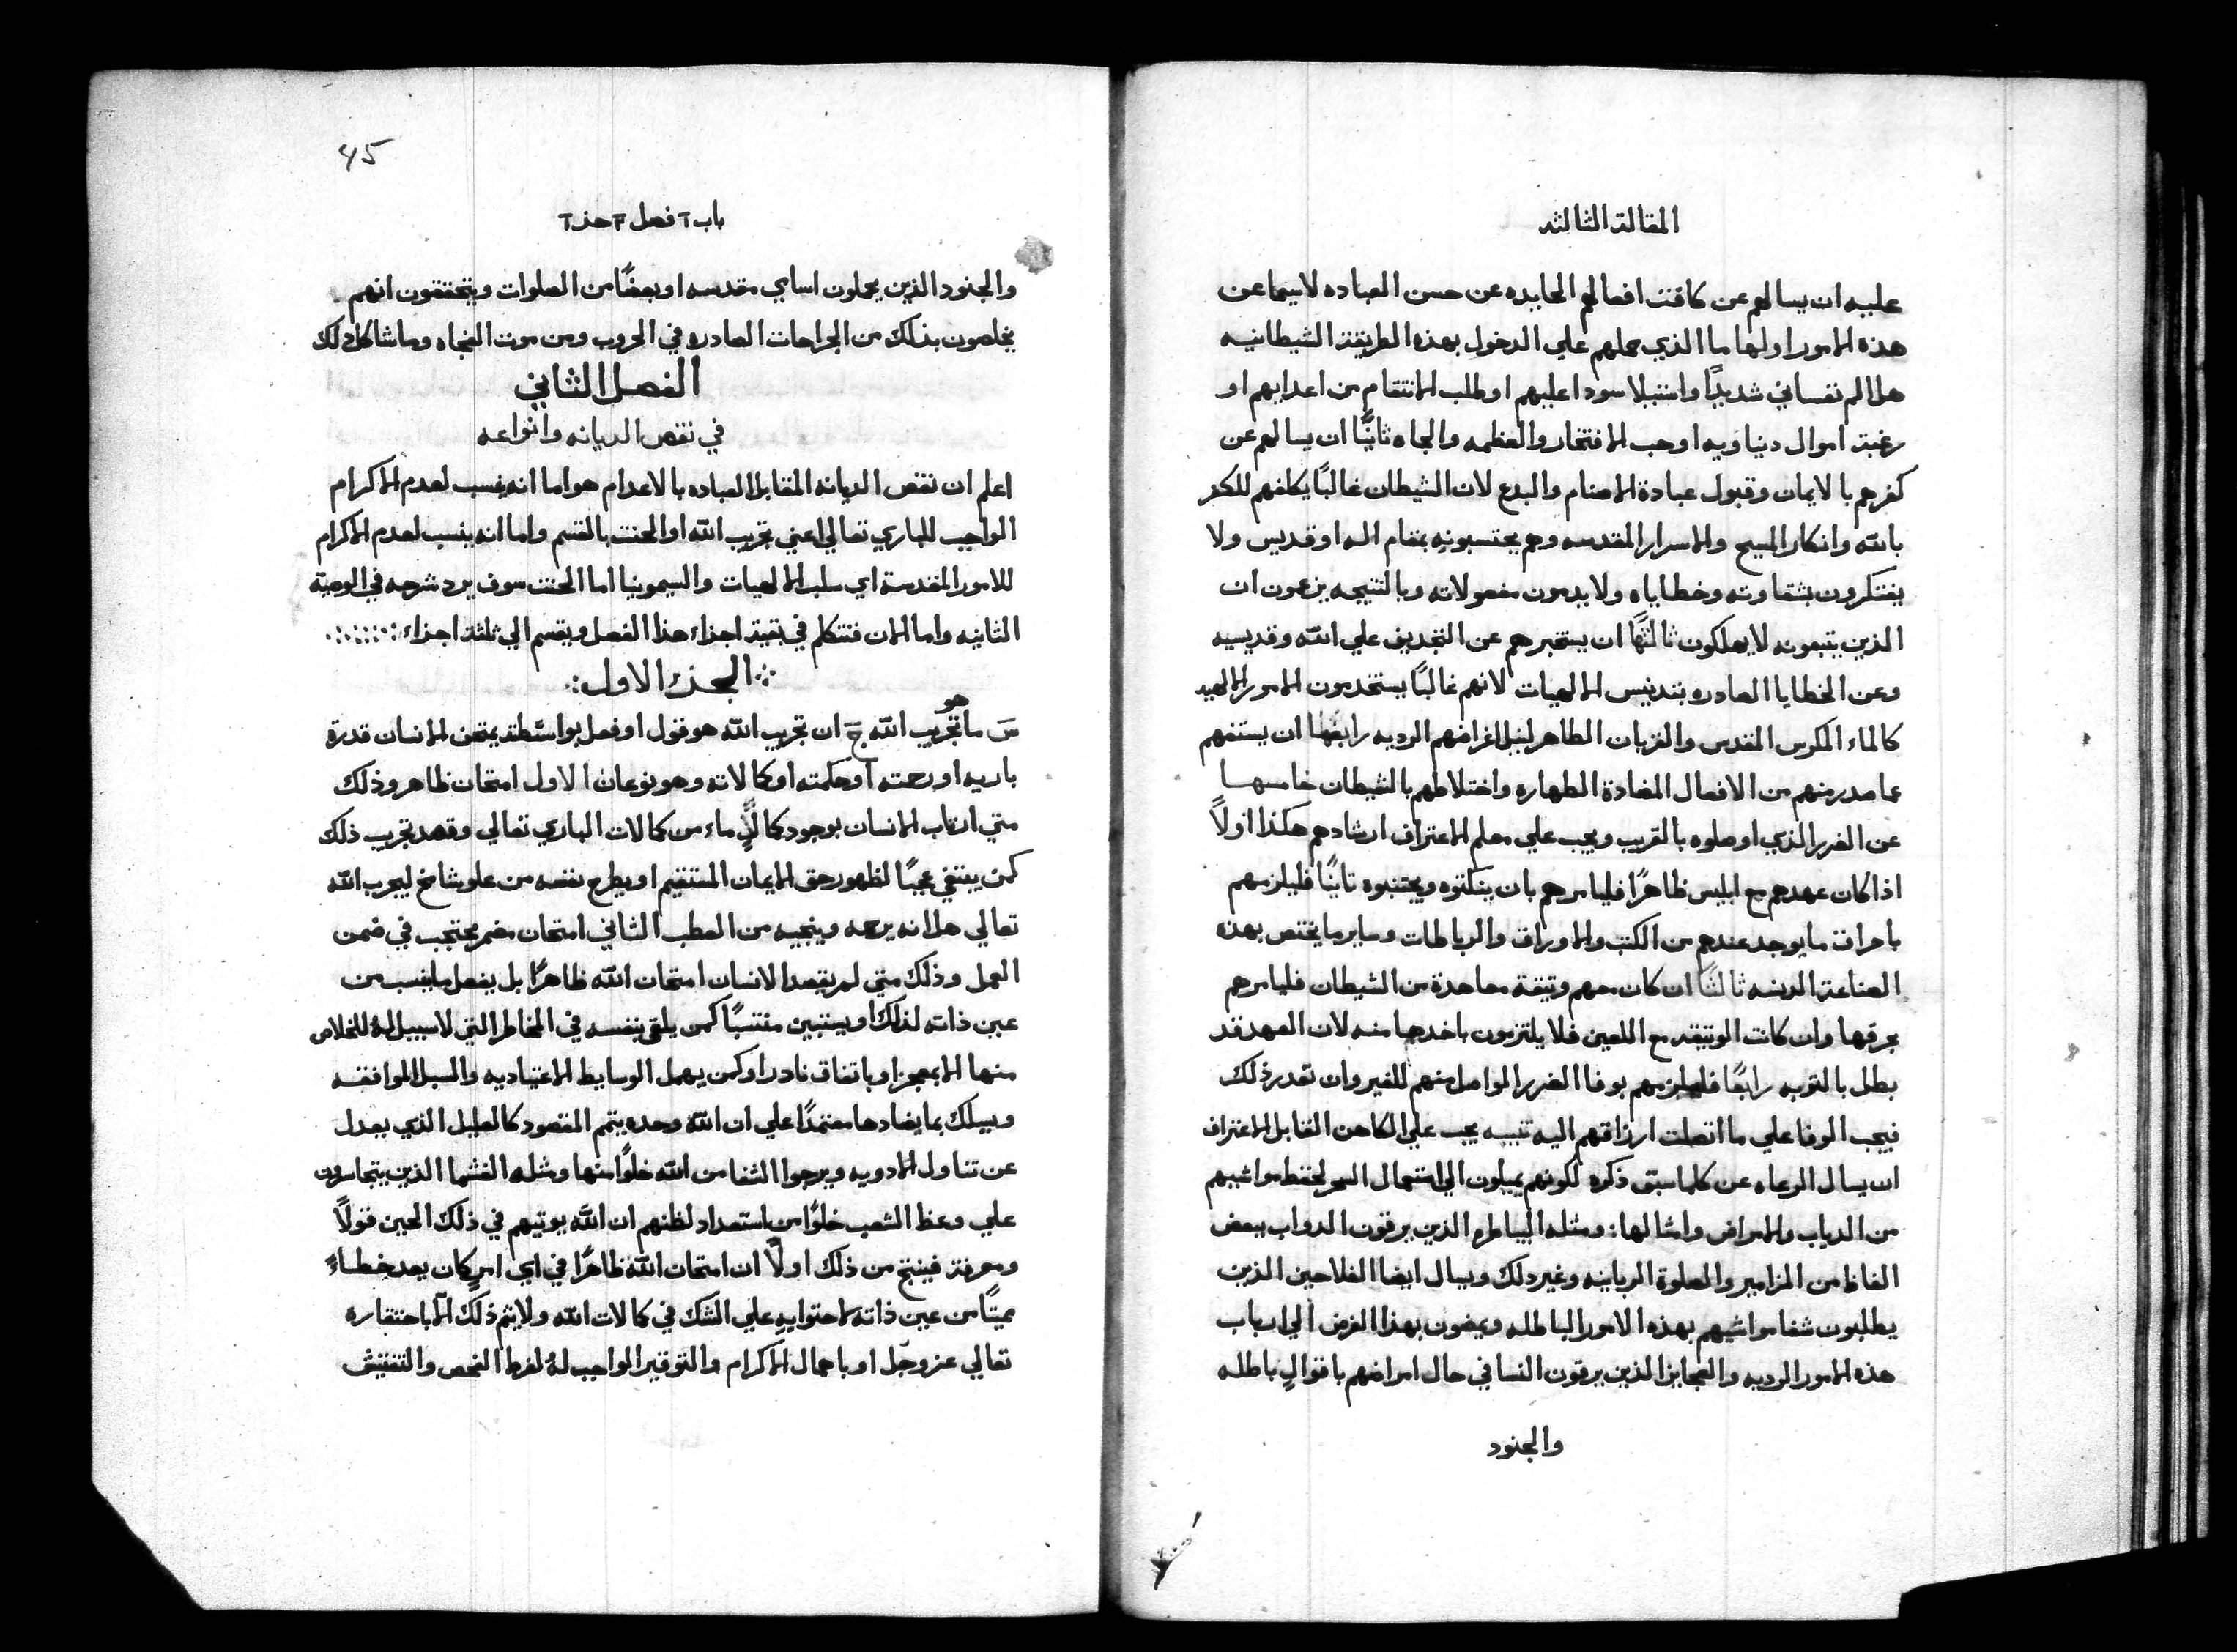 المقالة الثالثه
عليه ان يسالهم عن كافت افعالهم الحايده عن حسن العباده لاسيما عن
هذه الامور اولها ما الذي حملهم علي الدخول بهذه الطريقة الشيطانيه
هل الم نفساني شديدًا واستيلا سودا عليهم او طلب الانتقام من اعدايهم او
رغبة اموال دنياويه او حب الافتخار والعظمه والجاه ثانيًا ان يسالهم عن
كفرهم بالايمان وقبول عبادة الاصنام والبدع لان الشيطان غالبًا يكلفهم للكفر
بالله وانكار المسيح والاسرار المقدسه وهم يحتسبونه بمقام اله او قديس ولا
يفتكرون بشقاوته وخطاياه ولا يدمون مفعولاته وبالنتيجه يزعمون ان
الذين يتبعونه لا يهلكون ثالثًا ان يستخبرهم عن التجديف علي الله وقديسيه
وعن الخطايا الصادره بتدنيس الالهيات لانهم غالبًا يستخدمون الامور الالهيه
كالماء المكرس المقدس والقربان الطاهر لنيل اغراضهم الرديه رابعها ان يستفهم
عما صدر منهم من الافعال المضادة الطهاره واختلاطهم بالشيطان خامسها
عن الضرر الذي اوصلوه بالقريب ويجب علي معلم الاعتراف ارشادهم هكذا اولاً
اذا كان عهدهم مع ابليس ظاهرًا فليامرهم بان ينكثوه ويجتنبوه ثانيًا فليلزمهم
باحراق ما يوجد عندهم من الكتب والاوراق والرباطات وساير ما يختص بهذه
الصناعة الدنسه ثالثًا ان كان معهم وثيقة معاهدة من الشيطان فليامرهم
بحرقها وان كانت الوثيقه مع اللعين فلا يلتزمون باخدها منه لان العهد قد
بطل بالتوبه رابعًا فليلزمهم بوفا الضرر الواصل منهم للغير وان تعدر ذلك
فيجب الوفا علي ما اتصلت ارزاقهم اليه تنبيه يجب علي الكاهن القابل الاعتراف
ان يسال الرعاه عن كلما سبق ذكره لكونهم يميلون الي استعمال السحر لحفظ مواشيهم
من الدياب والامراض وامثالها: ومثله البياطره الذين يرقون الدواب ببعض
الفاظ من المزامير والصلوة الربانيه وغير دلك ويسال ايضا الفلاحين الذين
يطلبون شفا مواشيهم بهذه الامور الباطله ويمضون بهذا الغرض الي ارباب
هذه الامور الرديه والعجايز الذين يرقون النسا في حال امراضهم باقوالٍ باطله
والجنود
45
باب ٢ فصل ٢ جز ٢
والجنود الذين يحملون اسامي مقدسه او بعضًا من الصلوات ويتحققون انهم
يخلصون بذلك من الجراحات الصادره في الحروب ومن موت الفجاه وما شاكل دلك
الفصل الثاني
في نقص الديانه وانواعه
اعلم ان نقص الديانه المقابل العباده بالاعدام هو اما انه ينسب لعدم الاكرام
الواجب للباري تعالي اعني تجريب الله او الحنث بالقسم واما انه ينسب لعدم الاكرام
للامور المقدسة اي سلب الالهيات والسيمونيا اما الحنث سوف يرد شرحه في الوصية
الثانيه واما الان فنتكلم في بقية اجزاء هذا الفصل ويقسم الي ثلثة اجزاء
الجزء الاول
سَ ما هو تجريب الله جَ ان تجريب الله هو قول او فعل بواسطته يمتحن الانسان قدرة
باريه او رحمته او حكمته او كمالاته وهو نوعان الاول امتحان ظاهر وذلك
متي ارتاب الانسان بوجود كمالٍ ماء من كمالات الباري تعالي وقصد تجريب ذلك
كمن يبتغي عجبًا لظهور حق الايمان المستقيم او يطرح نفسه من علو شامخ ليجرب الله
تعالي هل انه يرحمه وينجيه من العطب الثاني امتحان مضمر محتجب في ضمن
العمل وذلك متي لم يقصد الانسان امتحان الله ظاهرًا بل يفعل ما ينسب من
عين ذاته لذلك او يستبين منتسبًا كمن يلقي بنفسه في المخاطر التي لا سبيل له للخلاص
منها الا بمعجز او باتفاق نادر او كمن يهمل الوسايط الاعتياديه والسبل الموافقه
ويسلك بما يضادها معتمدًا علي ان الله وحده يتمم المقصود كالعليل الذي يعدل
عن تناول الادويه ويرجوا الشفا من الله خلوًا منها ومثله الغشما الذين يتجاسرون
علي وعظ الشعب خلوًا من استعداد لظنهم ان الله يوتيهم في ذلك الحين قولاً
ومعرفة فينتج من ذلك اولاً ان امتحان الله ظاهرًا في اي امرٍ كان يعد خطاءً
مميتًا من عين ذاته لاحتوايه علي الشك في كمالات الله ولا يتم ذلك الا باحتقاره
تعالي عز وجل او باهمال الاكرام والتوقير الواجب له لفرط الفحص والتفتيش